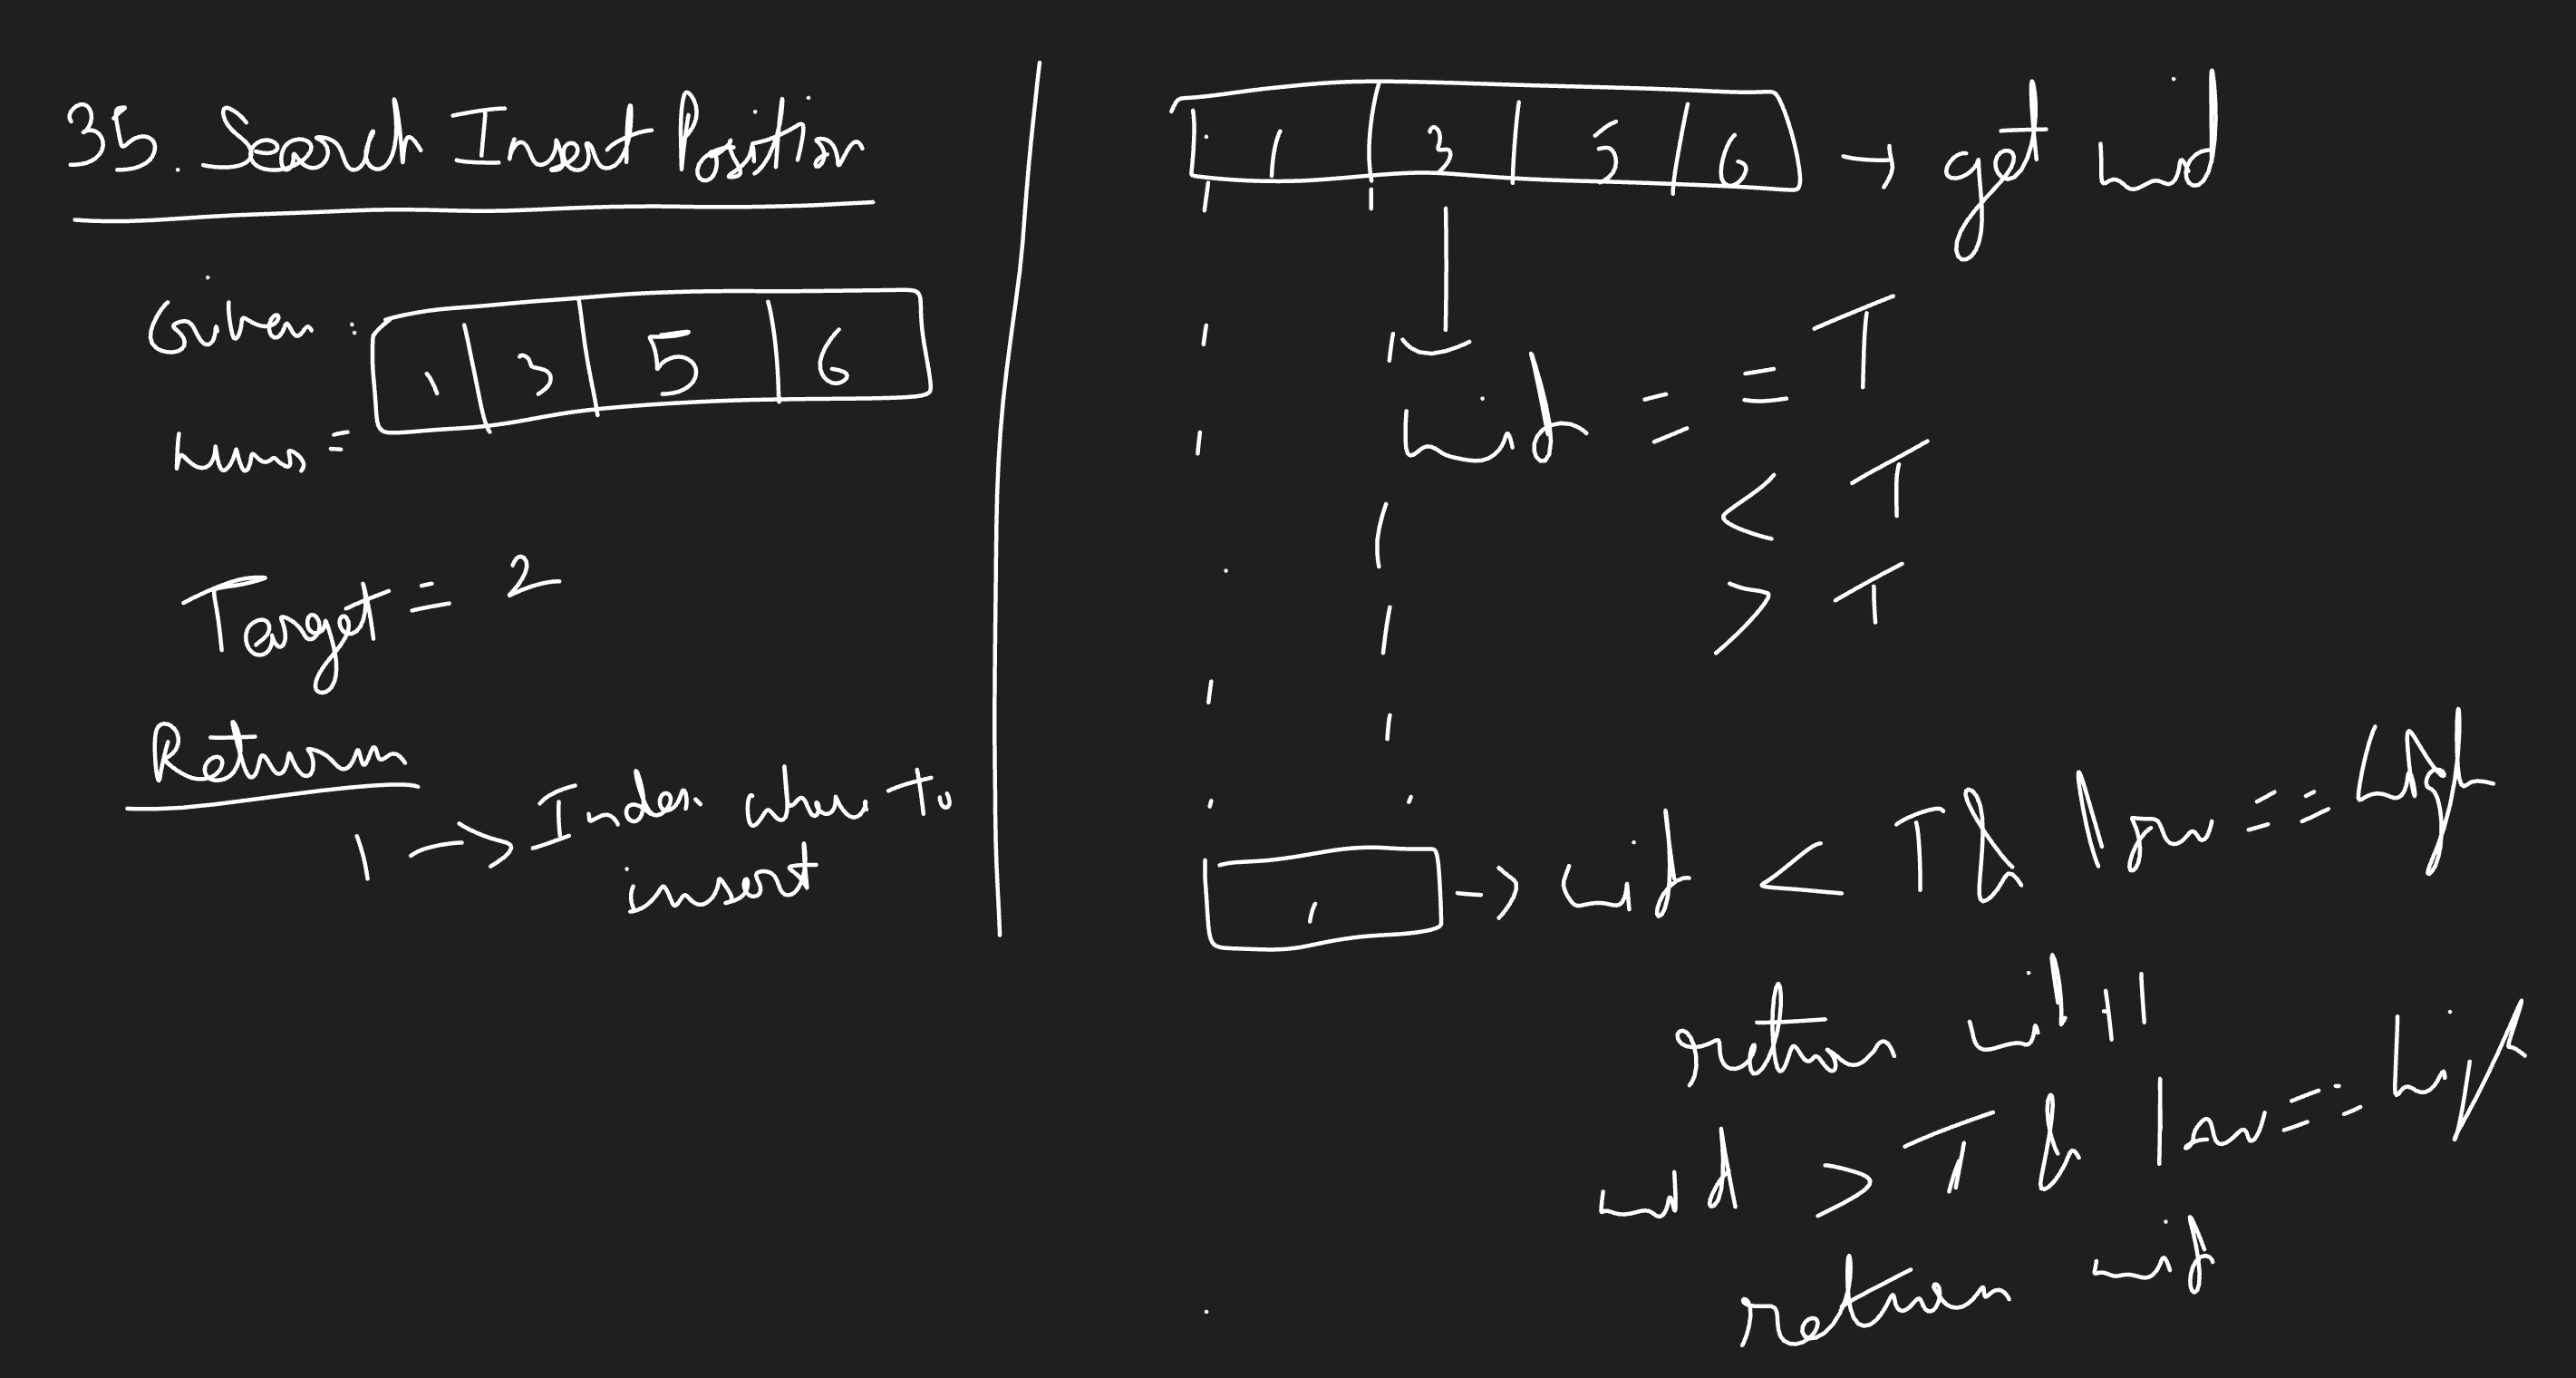 35. Search Insert Position
Given :
nums = 1 3 5 6
Target = 2
Return
1 -> Index where to
insert
1 3 5 6 -> get mid
mid = = T
< T
> T
1 -> mid < T & low == high
return mid + 1
mid > T & low == high
return mid